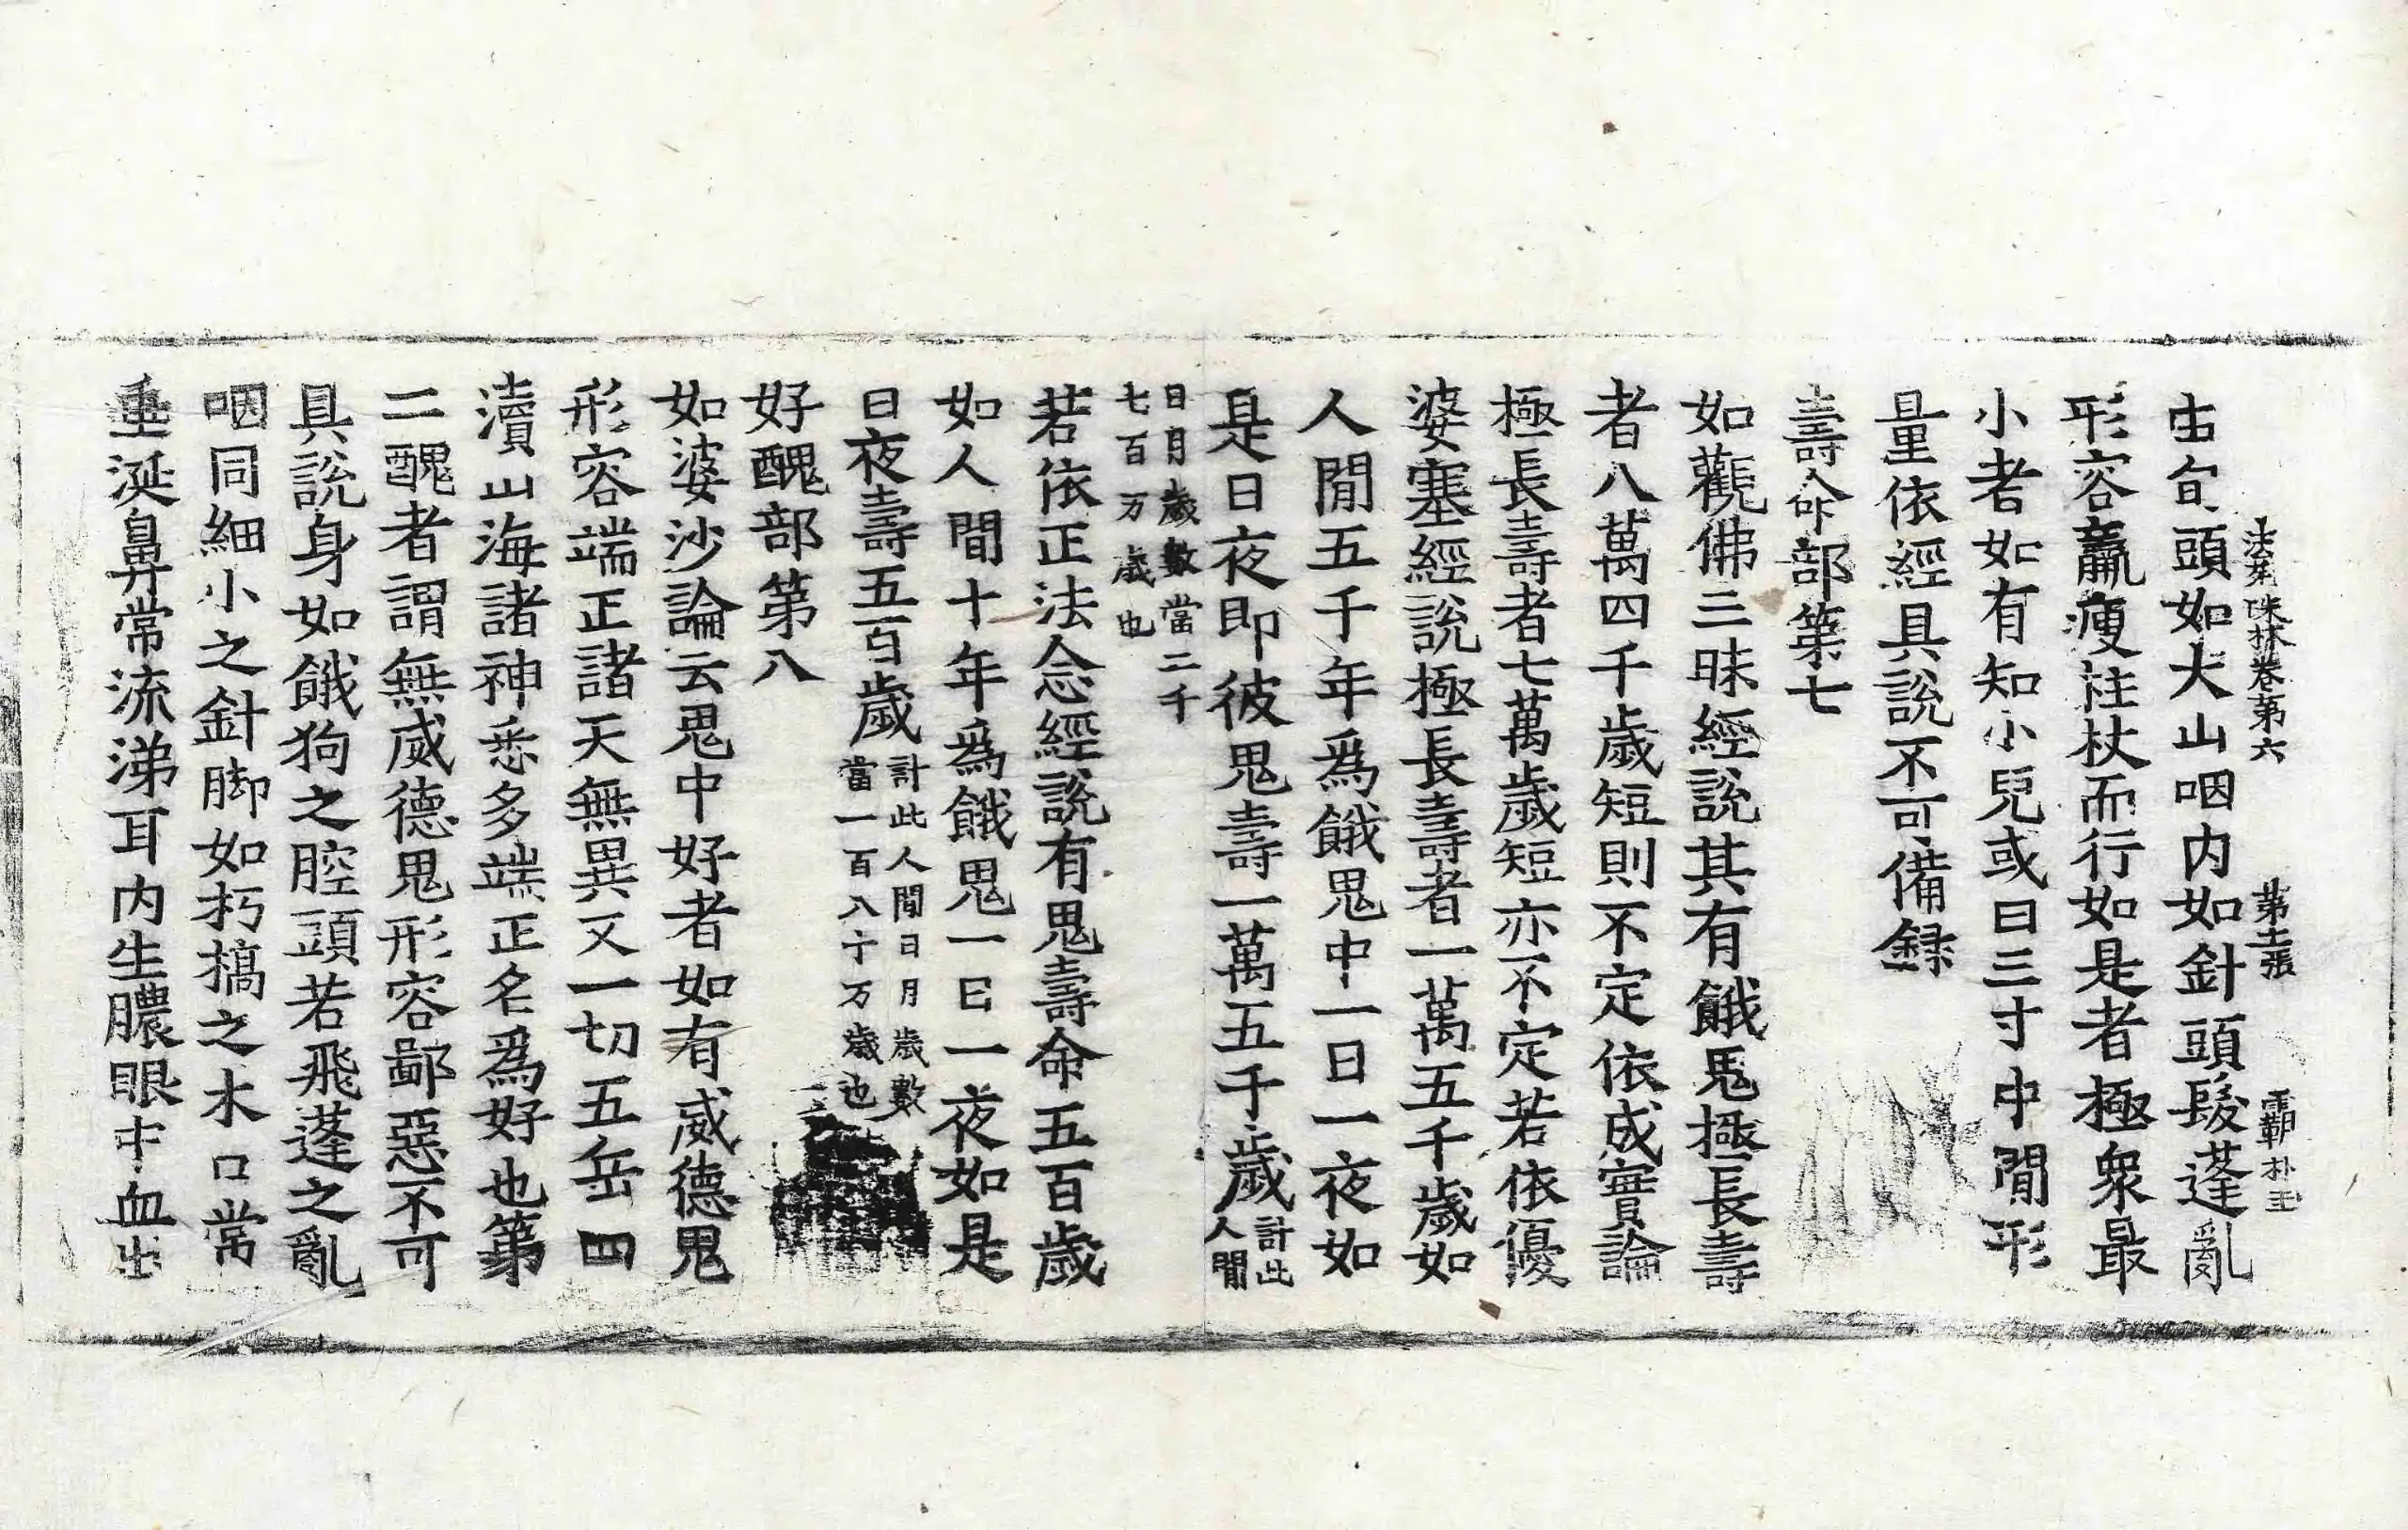 法苑珠林卷第六 第十二張 覇 朴
由旬頭如大山咽內如針頭髮蓬亂
形容羸瘦拄杖而行如是者極衆最
小者如有知小兒或曰三寸中間形
量依經具說不可備録
壽命部第七
如觀佛三昧經說其有餓鬼極長壽
者八萬四千歲短則不定依成實論
極長壽者七萬歲短亦不定若依優
婆塞經說極長壽者一萬五千歲如
人間五千年爲餓鬼中一日一夜如
是日夜即彼鬼壽一萬五千歲計此人間
日月歲數當二千七百万歲也
若依正法念經說有鬼壽命五百歲
如人間十年爲餓鬼一日一夜如是
日夜壽五百歲計此人間日月歲數當一百八十万歲也
好醜部第八
如婆沙論云鬼中好者如有威德鬼
形容端正諸天無異又一切五岳四
瀆山海諸神悉多端正名爲好也第
二醜者謂無威德鬼形容鄙惡不可
具說身如餓狗之腔頭若飛蓬之亂
咽同細小之針脚如朽槁之木口常
垂涎鼻常流涕耳內生膿眼中血出